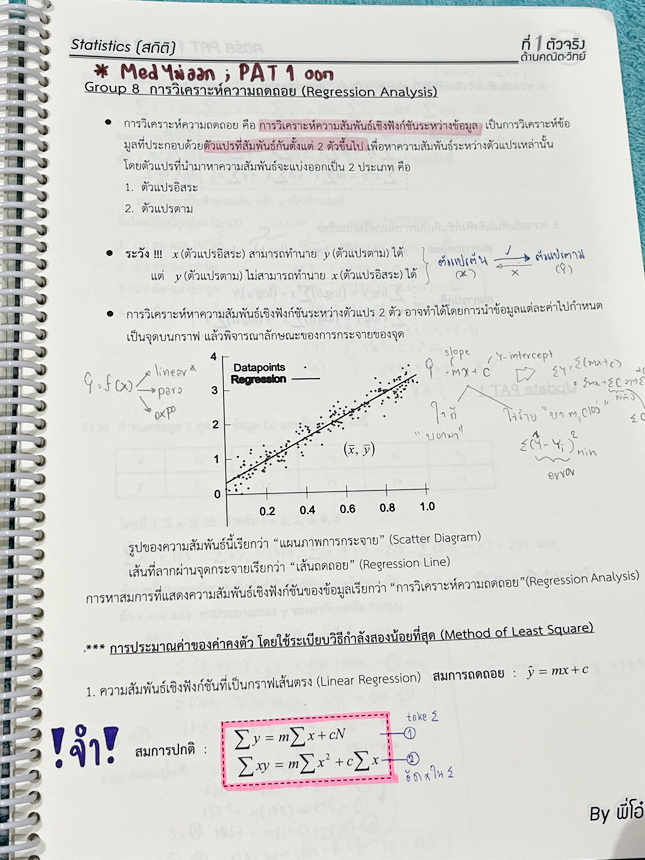 Statistics (สถิติ)
ที่ 1 ตัวจริง
ด้านคณิต-วิทย์
* Med ไม่ออก ; PAT 1 ออก
Group 8 การวิเคราะห์ความถดถอย (Regression Analysis)
• การวิเคราะห์ความถดถอย คือ การวิเคราะห์ความสัมพันธ์เชิงฟังก์ชันระหว่างข้อมูล เป็นการวิเคราะห์ข้อ
มูลที่ประกอบด้วยตัวแปรที่สัมพันธ์กันตั้งแต่ 2 ตัวขึ้นไป เพื่อหาความสัมพันธ์ระหว่างตัวแปรเหล่านั้น
โดยตัวแปรที่นำมาหาความสัมพันธ์จะแบ่งออกเป็น 2 ประเภท คือ
1. ตัวแปรอิสระ
2. ตัวแปรตาม
• ระวัง !!! x (ตัวแปรอิสระ) สามารถทำนาย y (ตัวแปรตาม) ได้
แต่ y (ตัวแปรตาม) ไม่สามารถทำนาย x (ตัวแปรอิสระ) ได้
ตัวแปรต้น ตัวแปรตาม
(x) x (Ŷ)
• การวิเคราะห์หาความสัมพันธ์เชิงฟังก์ชันระหว่างตัวแปร 2 ตัว อาจทำได้โดยการนำข้อมูลแต่ละค่าไปกำหนด
เป็นจุดบนกราฟ แล้วพิจารณาลักษณะของการกระจายของจุด
Ŷ = f(x)
linear*
para
expo
4
3
2
1
0
0.2 0.4 0.6 0.8 1.0
Datapoints
Regression
(x̄, ȳ)
slope
Y-intercept
Ŷ = mx + C
ΣY = Σ(mx+c)
"บอกมา"
Σ(Ŷ - Yᵢ)² min
error
รูปของความสัมพันธ์นี้เรียกว่า "แผนภาพการกระจาย" (Scatter Diagram)
เส้นที่ลากผ่านจุดกระจายเรียกว่า "เส้นถดถอย" (Regression Line)
การหาสมการที่แสดงความสัมพันธ์เชิงฟังก์ชันของข้อมูลเรียกว่า "การวิเคราะห์ความถดถอย"(Regression Analysis)
*** การประมาณค่าของค่าคงตัว โดยใช้ระเบียบวิธีกำลังสองน้อยที่สุด (Method of Least Square)
1. ความสัมพันธ์เชิงฟังก์ชันที่เป็นกราฟเส้นตรง (Linear Regression) สมการถดถอย : ŷ = mx + c
!จำ!
สมการปกติ :
∑y = m∑x + cN
∑xy = m∑x² + c∑x
take Σ
①
②
By พี่โอ๋